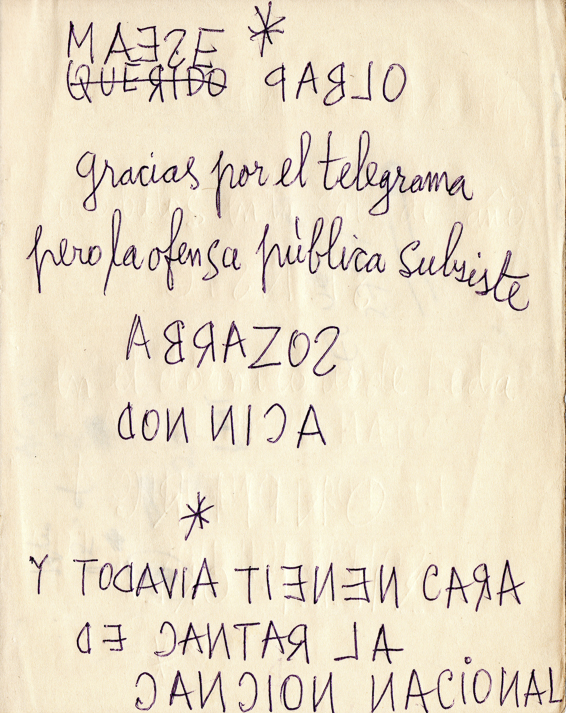 MAESE *
QUERIDO PABLO
gracias por el telegrama
pero la ofensa pública subsiste
ABRAZOS
DON NICA
*
Y TODAVIA TIENEN CARA
DE CANTAR LA
CANCION NACIONAL